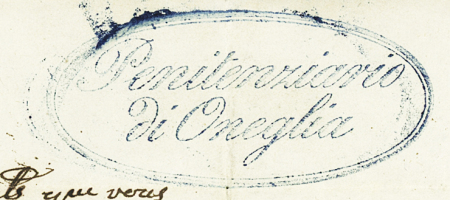 Penitenziario
di Oneglia